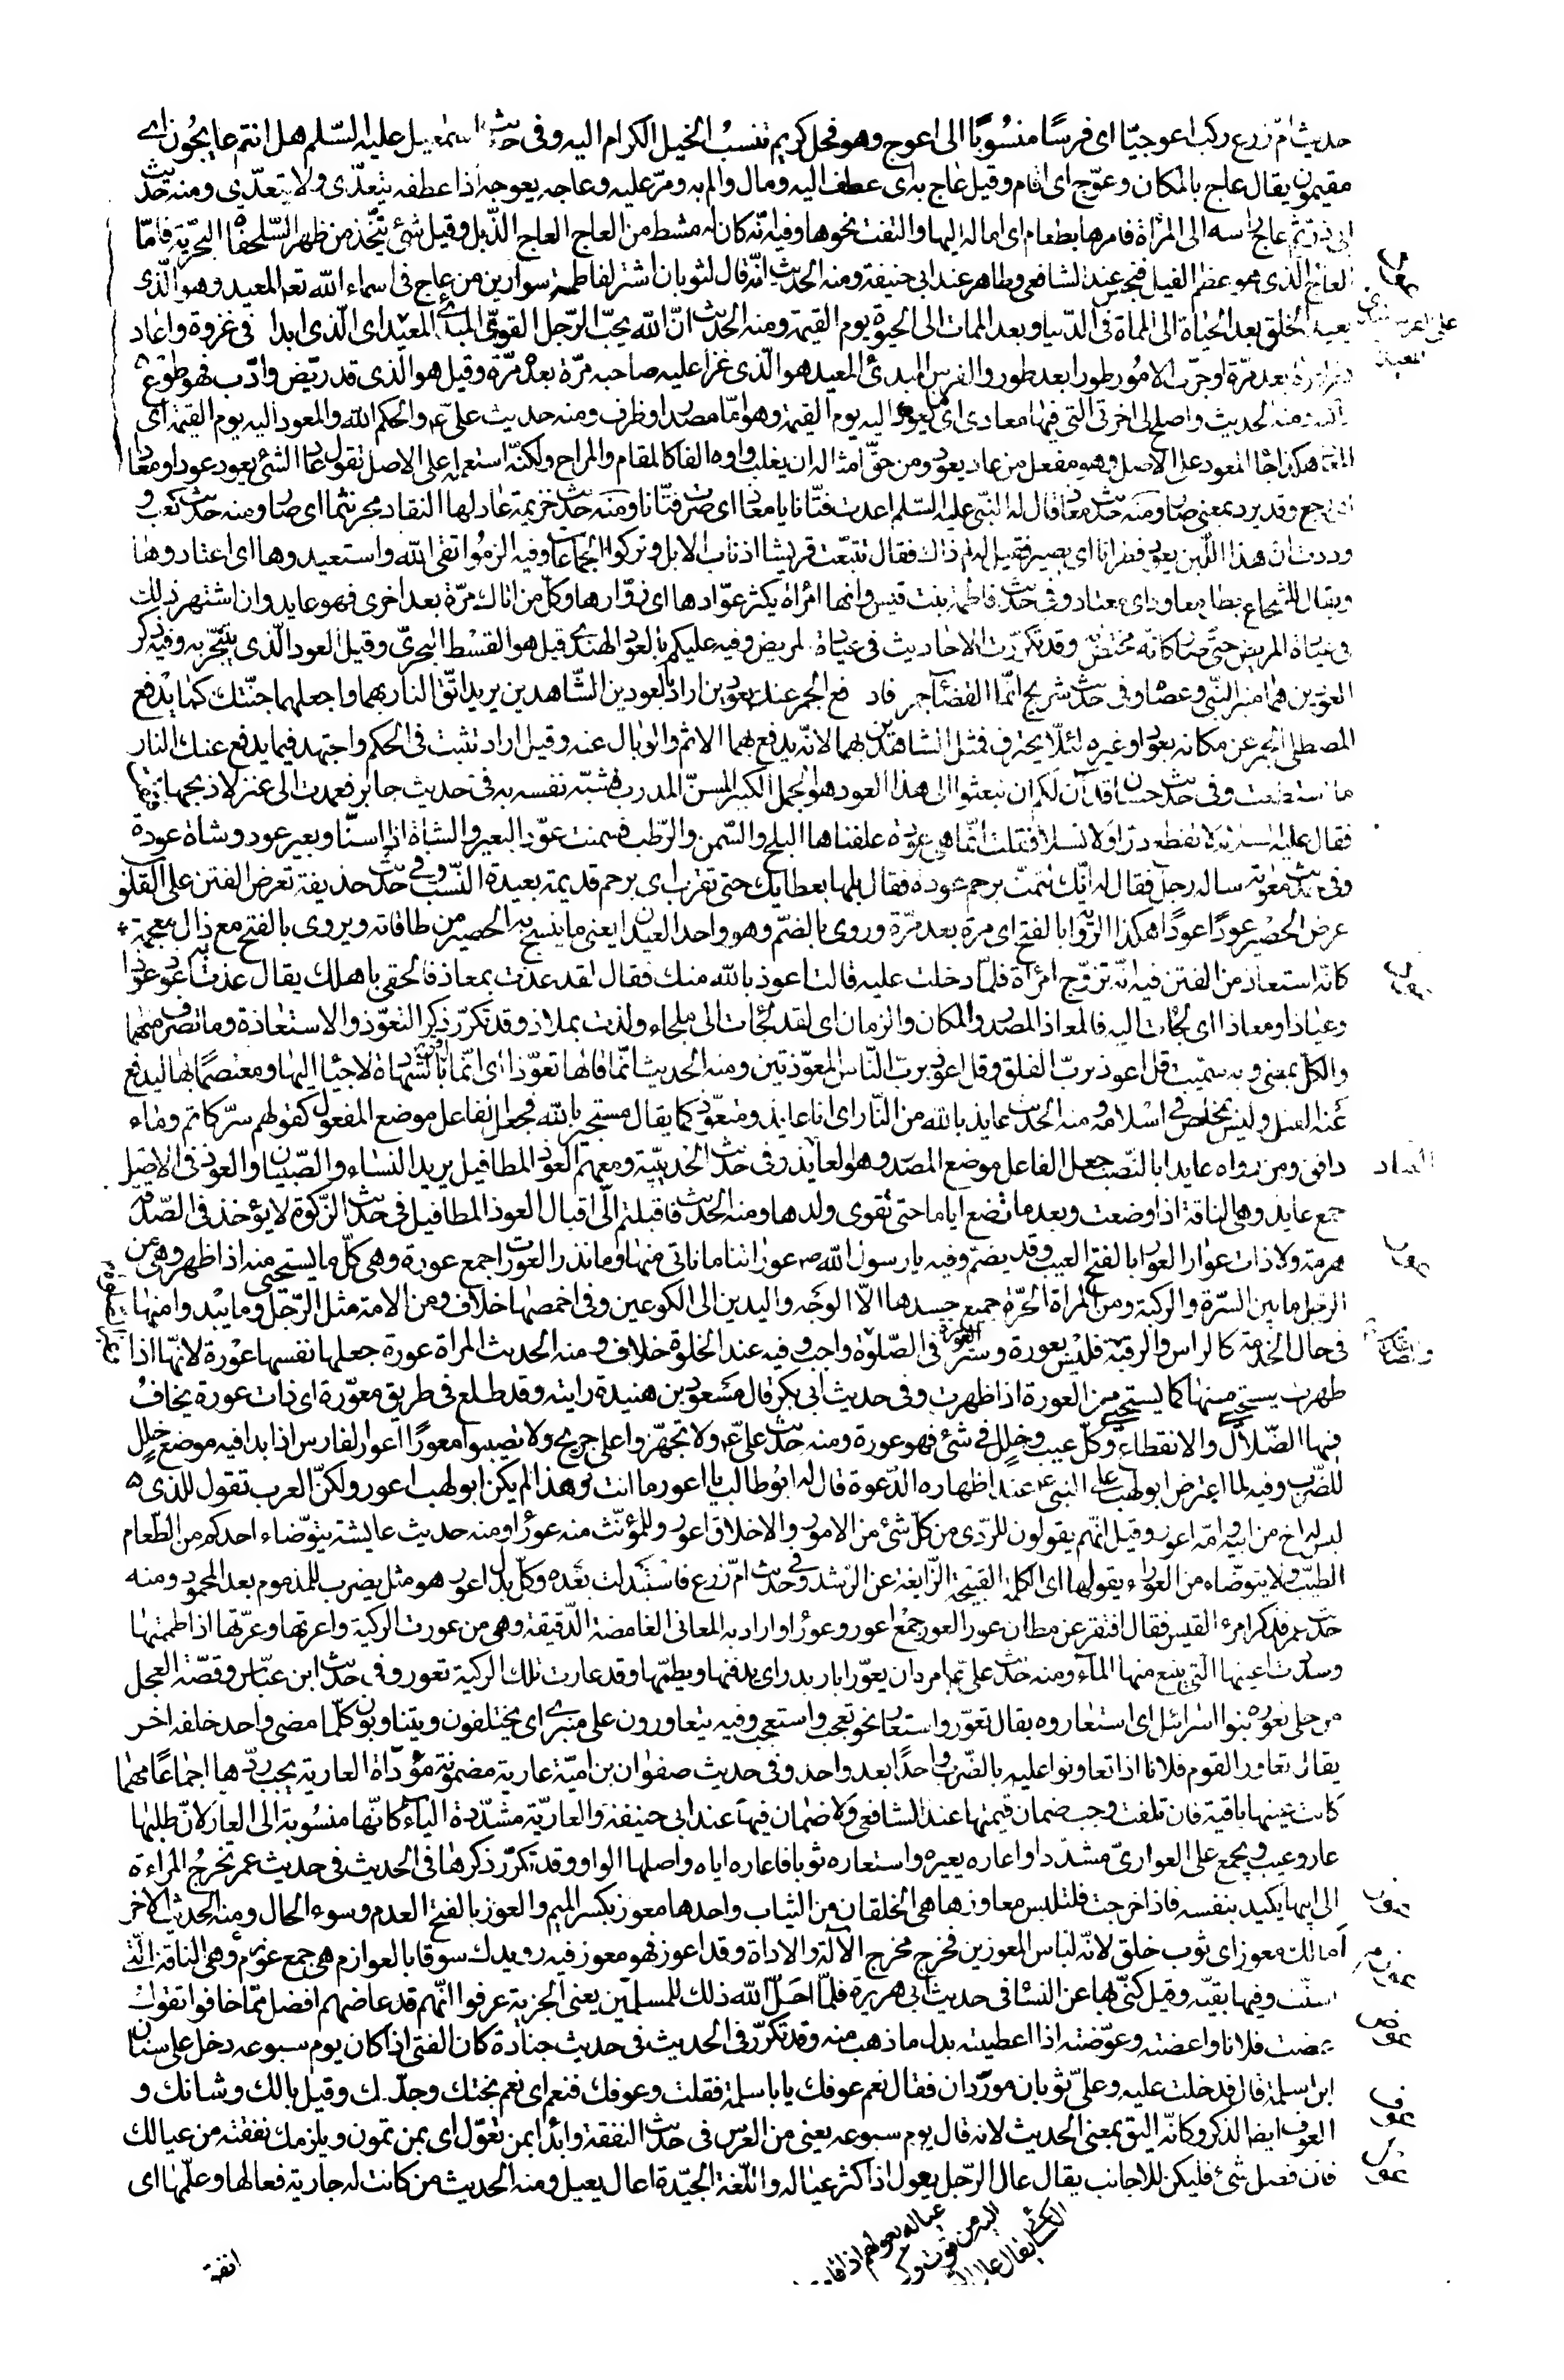 حديث امّ زرع ركب اعوجيّا اى فرسًا منسُوبًا الى اعوج وهو فحل كريم تنسبُ الخيل الكرام اليه وفى حديث اسمعيل عليه السّلم هل انتم عايجُون اى
مقيمون يقال عاج بالمكان وعوّج اى اقام وقيل عاج به اى عطف اليه ومال والم به ومرّ عليه وعاجه يعوجه اذا عطفه يتعدّى ولا يتعدّى ومنه حديث
ابى ذرّ ثم عاج راسه الى المرْاة فامرها بطعام اى اماله اليها والتفت نحوها وفيه انّه كان له مشط من العاج العاج الذّبل وقيل شئ يتّخذ من ظهر السّلحفاة البحريّة فامّا
العاج الّذى هو عظم الفيل فنجس عند الشافعى وطاهر عند ابى حنيفة ومنه الحديث انّه قال لثوبان اشتر لفاطمة سوارين من عاج فى اسماء الله تعم المعيد وهو الّذى
يعيد الخلق بعد الحيٰاة الى المماة فى الدّنيا وبعد الممات الى الحيوة يوم القيمة ومنه الحديث انّ الله يحبّ الرّجل القوىّ المبدئ المعيْد اى الّذى ابدا فى غزوة واعاد
بعد مرّة او جرّب الامُور طورا بعد طور والفرس المبدئ المعيد هو الّذى غزا عليه صاحبه مرّة بعد مرّة وقيل هو الّذى قد ريّض وادّب فهو طوع
ومنه الحديث واصلح لى اخرتى التى فيها معادى اى ما يعود اليه يوم القيمة وهو امّا مصدر او ظرف ومنه حديث علىّ ع والحكم الله والمعود اليه يوم القيمة اى
المعاد هكذا جٰا المعود على الاصل وهو مفعل من عاد يعود ومن حقّ امثاله ان يغلب واوه الفا كالمقام والمراح ولكنّه استعمله على الاصل تقول عاد الشئ يعود عودا ومعادا
اى رجع وقد يرد بمعنى صار ومنه حديث معاذ قال له النبّى عليه السّلم اعدت فتّانا يا معاذ اى صرت فتّانا ومنه حديث خزيمة عاد لها النقاد مجرنثما اى صار ومنه حديث كعب و
وددت ان هذا اللّبن يعود قطرانا اى يصير فقيل له لم ذاك فقال تتبعّت قريش اذناب الابل وتركوا الجماعات وفيه الزمُوا تقى الله واستعيدوها اى اعتادوها
ويقال للشجاع بطل معاود اى معتاد وفى حديث فاطمة بنت قيس وانها امرْاة يكثر عوّادها اى زوّارها وكلّ من اتاك مرّة بعد اخرى فهو عايد وان اشتهر ذلك
فى عيادة المريض حتّى صار كانّه مختصّ به وقد تكرّرت الاحاديث فى عيادة المريض وفيه عليكم بالعود الهندى قيل هو القسْط البحرىّ وقيل العود الّذى يتبخّر به وفيه ذكر
العودين هما منبر النبّى وعصاه وفى حديث شريح انّما القضآء جمر فادفع الجمر عنك بعودين اراد بالعودين الشّاهدين يريد اتّق النار بهما واجعلهما جنّتك كما يدْفع
المصطلى الجمر عن مكانه بعود او غيره لئلّا يحترق فمثل الشاهدين بهما لانه يدفع بهما الاثم والوبال عنه وقيل اراد تثبت فى الحكم واجتهد فيما يدفع عنك النار
ما استطعت وفى حديث حسان قد آن لكم ان تبعثوا الى هذا العود هو الجمل الكبير المسنّ المدرب فشبّه نفسه به فى حديث جابر فعمدت الى عنز لاذبحها فثغت
فقال عليه السلم لا تقطع درّا ولا نسلا فقلت انّما هى عودة علفناها البلح والسّمن والرّطب فسمنت عوّد البعير والشاة اذا اسنّا وبعير عود وشاة عودة
وفى حديث معوية ساله رجل فقال له انّك لتمتّ برحم عودة فقال بلّها بعطايك حتى تقرب اى برحم قديمة بعيدة النّسب وفى حديث حذيفة تعرض الفتن على القلوب
عرض الحصير عودًا عودًا هكذا الرّوايا بالفتح اى مرة بعد مرّة وروى بالضمّ وهو واحد العيدان يعنى ما ينسج به الحصير من طاقاته ويروى بالفتح مع ذال معجمة
كانّه استعاذ من الفتن فيه انّه تزوّج امرْاة فلمّا دخلت عليه قالت اعوذ بالله منك فقال لقد عذت بمعاذ فالحقى باهلك يقال عذت به اعوذ عوذا
وعياذا ومعاذا اى لجٰات اليه فالمعاذ المصدر والمكان والزمان اى لقد لجٰات الى ملجاء ولذت بملاذ وقد تكرّر ذكر التعوّذ والاستعاذة وما تصرف منهما
والكل بمعنى وبه سمّيت قل اعوذ بربّ الفلق وقل اعوذ بربّ النّاس المعوّذتين ومنه الحديث انّما قالها تعوّذا اى انّما اقرّ بالشهادة لاجيًا اليها ومعتصمًا بها ليدفع
عَنه القتل وليس بمخلص فى اسْلامه ومنه الحديث عايذ بالله من النّار اى انا عايذ ومتعوّذ كما يقال مستجير بالله فجعل الفاعل موضع المفعول كقولهم سرّ كاتم وماء
دافق ومن رواه عايذا بالنّصب جعل الفاعل موضع المصدر وهو العايذ وفى حديث الحديبيّة ومعهم العوذ المطافيل يريد النسٰاء والصّبيان والعوذ فى الاصل
جمع عايذ وهى الناقة اذا وضعت وبعد ما تضع اياما حتى تقوى ولدها ومنه الحديث فاقبلتم الىّ اقبال العوذ المطافيل فى حديث الزّكوة لا يؤخذ فى الصّدقة
هرمة ولا ذات عوار العوار بالفتح العيب وقد يضم وفيه يا رسول الله ص عوراتنا ما ناتى منها وما نذر العورات جمع عورة وهى كلّ ما يستحيى منه اذا ظهر وهى من
الرجل ما بين السّرة والركبة ومن المراة الحرّة جميع جسدها الّا الوجه واليدين الى الكوعين وفى اخمصها خلاف ومن الامة مثل الرّجل وما يبْدو منها
فى حال الخدمة كالراس والرقبة فليس بعورة وستر العورة فى الصّلوة واجب وفيه عند الخلوة خلاف ومنه الحديث المراة عورة جعلها نفسها عوْرة لانّها اذا
ظهرت يستحيى منها كما يستحيى من العورة اذا ظهرت وفى حديث ابى بكر قال مسعود بن هنيدة رايته وقد طلع فى طريق معوّرة اى ذات عورة يخافُ
فيها الضّلال والانقطاع وكلّ عيب وخلل فى شئ فهو عورة ومنه حديث علىّ ع ولا تجهّزوا على جريح ولا تصيبوا معورًا اعوار الفارس اذا بدا فيه موضع خلل
للضّرب وفيه لما اعترض ابو لهب على النبى ع عند اظهاره الدّعوة قال له ابُو طالب يا اعور ما انت وهذا لم يكن ابو لهب اعور ولكنّ العرب تقول للذى
ليس له اخ من ابيه وامّه اعور وقيل انّهم يقولون للردّى من كلّ شئ من الامور والاخلاق اعور وللمؤنث منه عورا ومنه حديث عايشة يتوضّاء احدكم من الطّعام
الطيّب ولا يتوضّاه من العوراء يقولها اى الكلمة القبيحة الزّايغة عن الرّشد وفى حديث امّ زرع فاستبدلت بَعْده وكلّ بدل اعور هو مثل يضرب للمذموم بعد المحمود ومنه
حديث عمر وذكر امرء القيس فقال افتقر عن معان عور العور جمع اعور وعورا واراد به المعانى الغامضة الدّقيقة وهى من عورت الركية واعرتها وعرّتها اذا طممتها
وسددت اعينها التّى ينبع منها المآء ومنه حديث علىّ ع امر ان يعوّر ابار بدر اى يدفنها ويطمّها وقد عارت تلك الركية تعور وفى حديث ابن عبّاس وقصّة العجل
من حلى تعوّره بنوا اسرائيل اى استعاروه يقال تعوّر واستعار نحو تعجب واستعجب وفيه يتعاورون على منبرى اى يختلفون ويتناوبون كلّما مضى واحد خلفه اخر
يقال تعاور القوم فلانا اذا تعاونوا عليه بالضّرب واحدًا بعد واحد وفى حديث صفوان بن اميّة عارية مضمونة مؤدّاة العارية يجب ردّها اجماعًا مهما
كانت عينها باقية فان تلفت وجب ضمان قيمتها عند الشافعى ولا ضمان فيها عند ابى حنيفة والعاريّة مشدّدة اليآء كانّها منسُوبة الى العار لانّ طلبها
عار وعيب ويجمع على العوارىّ مشدّدا واعاره يعيره واستعاره ثوبا فاعاره اياه واصلها الواو وقد تكرّر ذكرها فى الحديث فى حديث عمر تخرجُ المراءة
الى ابيها يكيد بنفسه فاذا خرجت فلتلبس معاوزها هى الخلقان من الثياب واحدها معوز بكسر الميم والعوز بالفتح العدم وسوء الحال ومنه الحديث الاخر
اما لك معوز اى ثوب خلق لانّه لباس المعوزين فخرج مخرج الآلة والاداة وقد اعوز فهو معوز فيه رويدك سوقا بالعوازم هى جمع عوزم وهى الناقة الّتى
اسنّت وفيها بقيّة وقيل كنّى بها عن النسٰا فى حديث ابى هريرة فلمّا احلّ الله ذلك للمسلمين يعنى الجزية عرفوا انّهم قد عاضهم افضل ممّا خافوا تقول
عضت فلانا واعضته وعوّضته اذا اعطيته بدل ما ذهب منه وقد تكرّر فى الحديث فى حديث جنادة كان الفتى اذا كان يوم سبوعه دخل على سنان
ابن سلمة قال فدخلت عليه وعلىّ ثوبان مورّدان فقال نعم عوفك يا باسلمة فقلت وعوفك فنعم اى نعم بختك وجدّك وقيل بالك وشانك و
العوف ايضا الذكر وكانّه اليق بمعنى الحديث لانه قال يوم سبوعه يعنى من العرس فى حديث النفقة وابدأ بمن تعوّل اى بمن تمون ويلزمك نفقته من عيالك
فان فضل شئ فليكن للاجانب يقال عال الرّجل يعول اذا كثر عيٰاله واللّغة الجيّدة اعال يعيل ومنه الحديث من كانت له جارية فعالها وعلّمها اى
انفق
عود
عوذ
عور
عوز
عوزم
عوض
عوف
عول